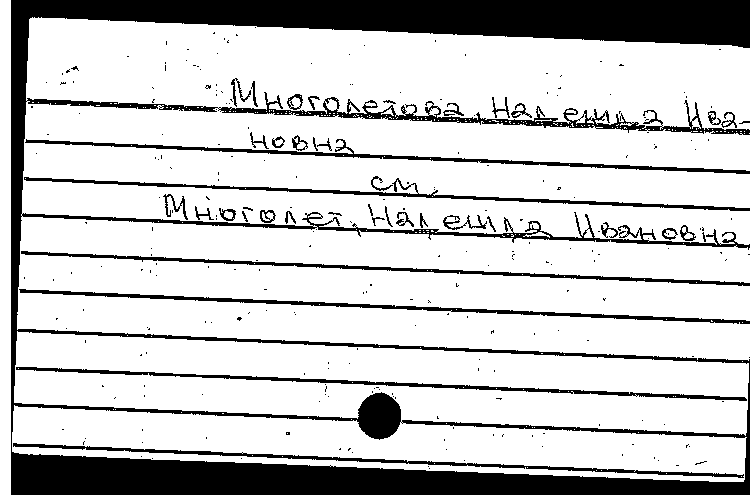 Многолетова, Надежда Ива-
новна
см.
Многолет, Надежда Ивановна